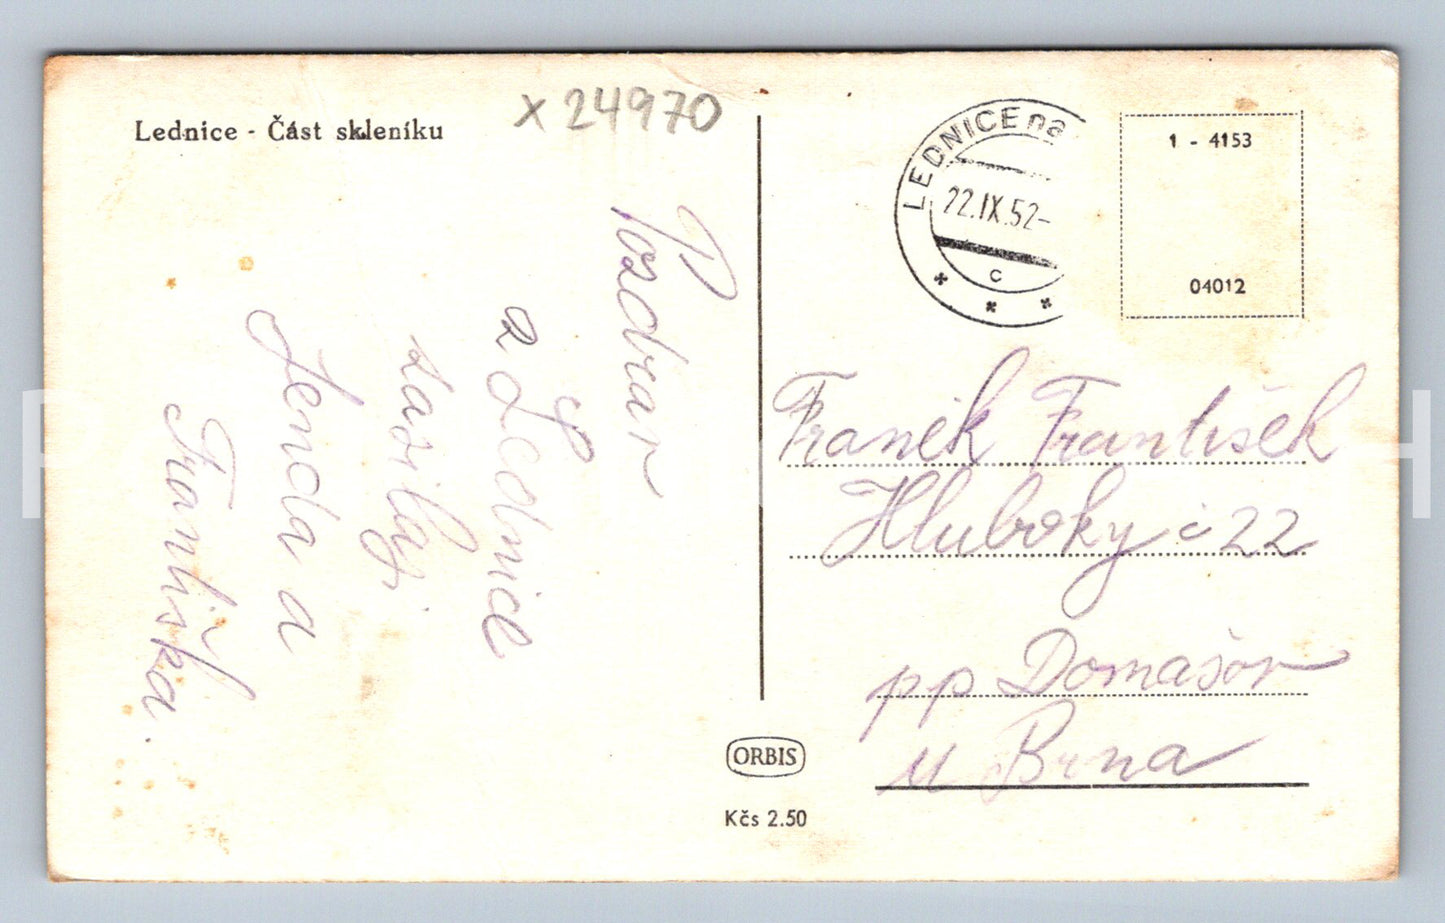 Lednice - Část skleníku
x 24970
Pozdrav
z Lednice
zasílají
Lenda a
Františka.
LEDNICE na
22.IX.52-
c
1 - 4153
04012
Franěk František
Hluboky č 22
pp Domašov
u Brna
ORBIS
Kčs 2.50